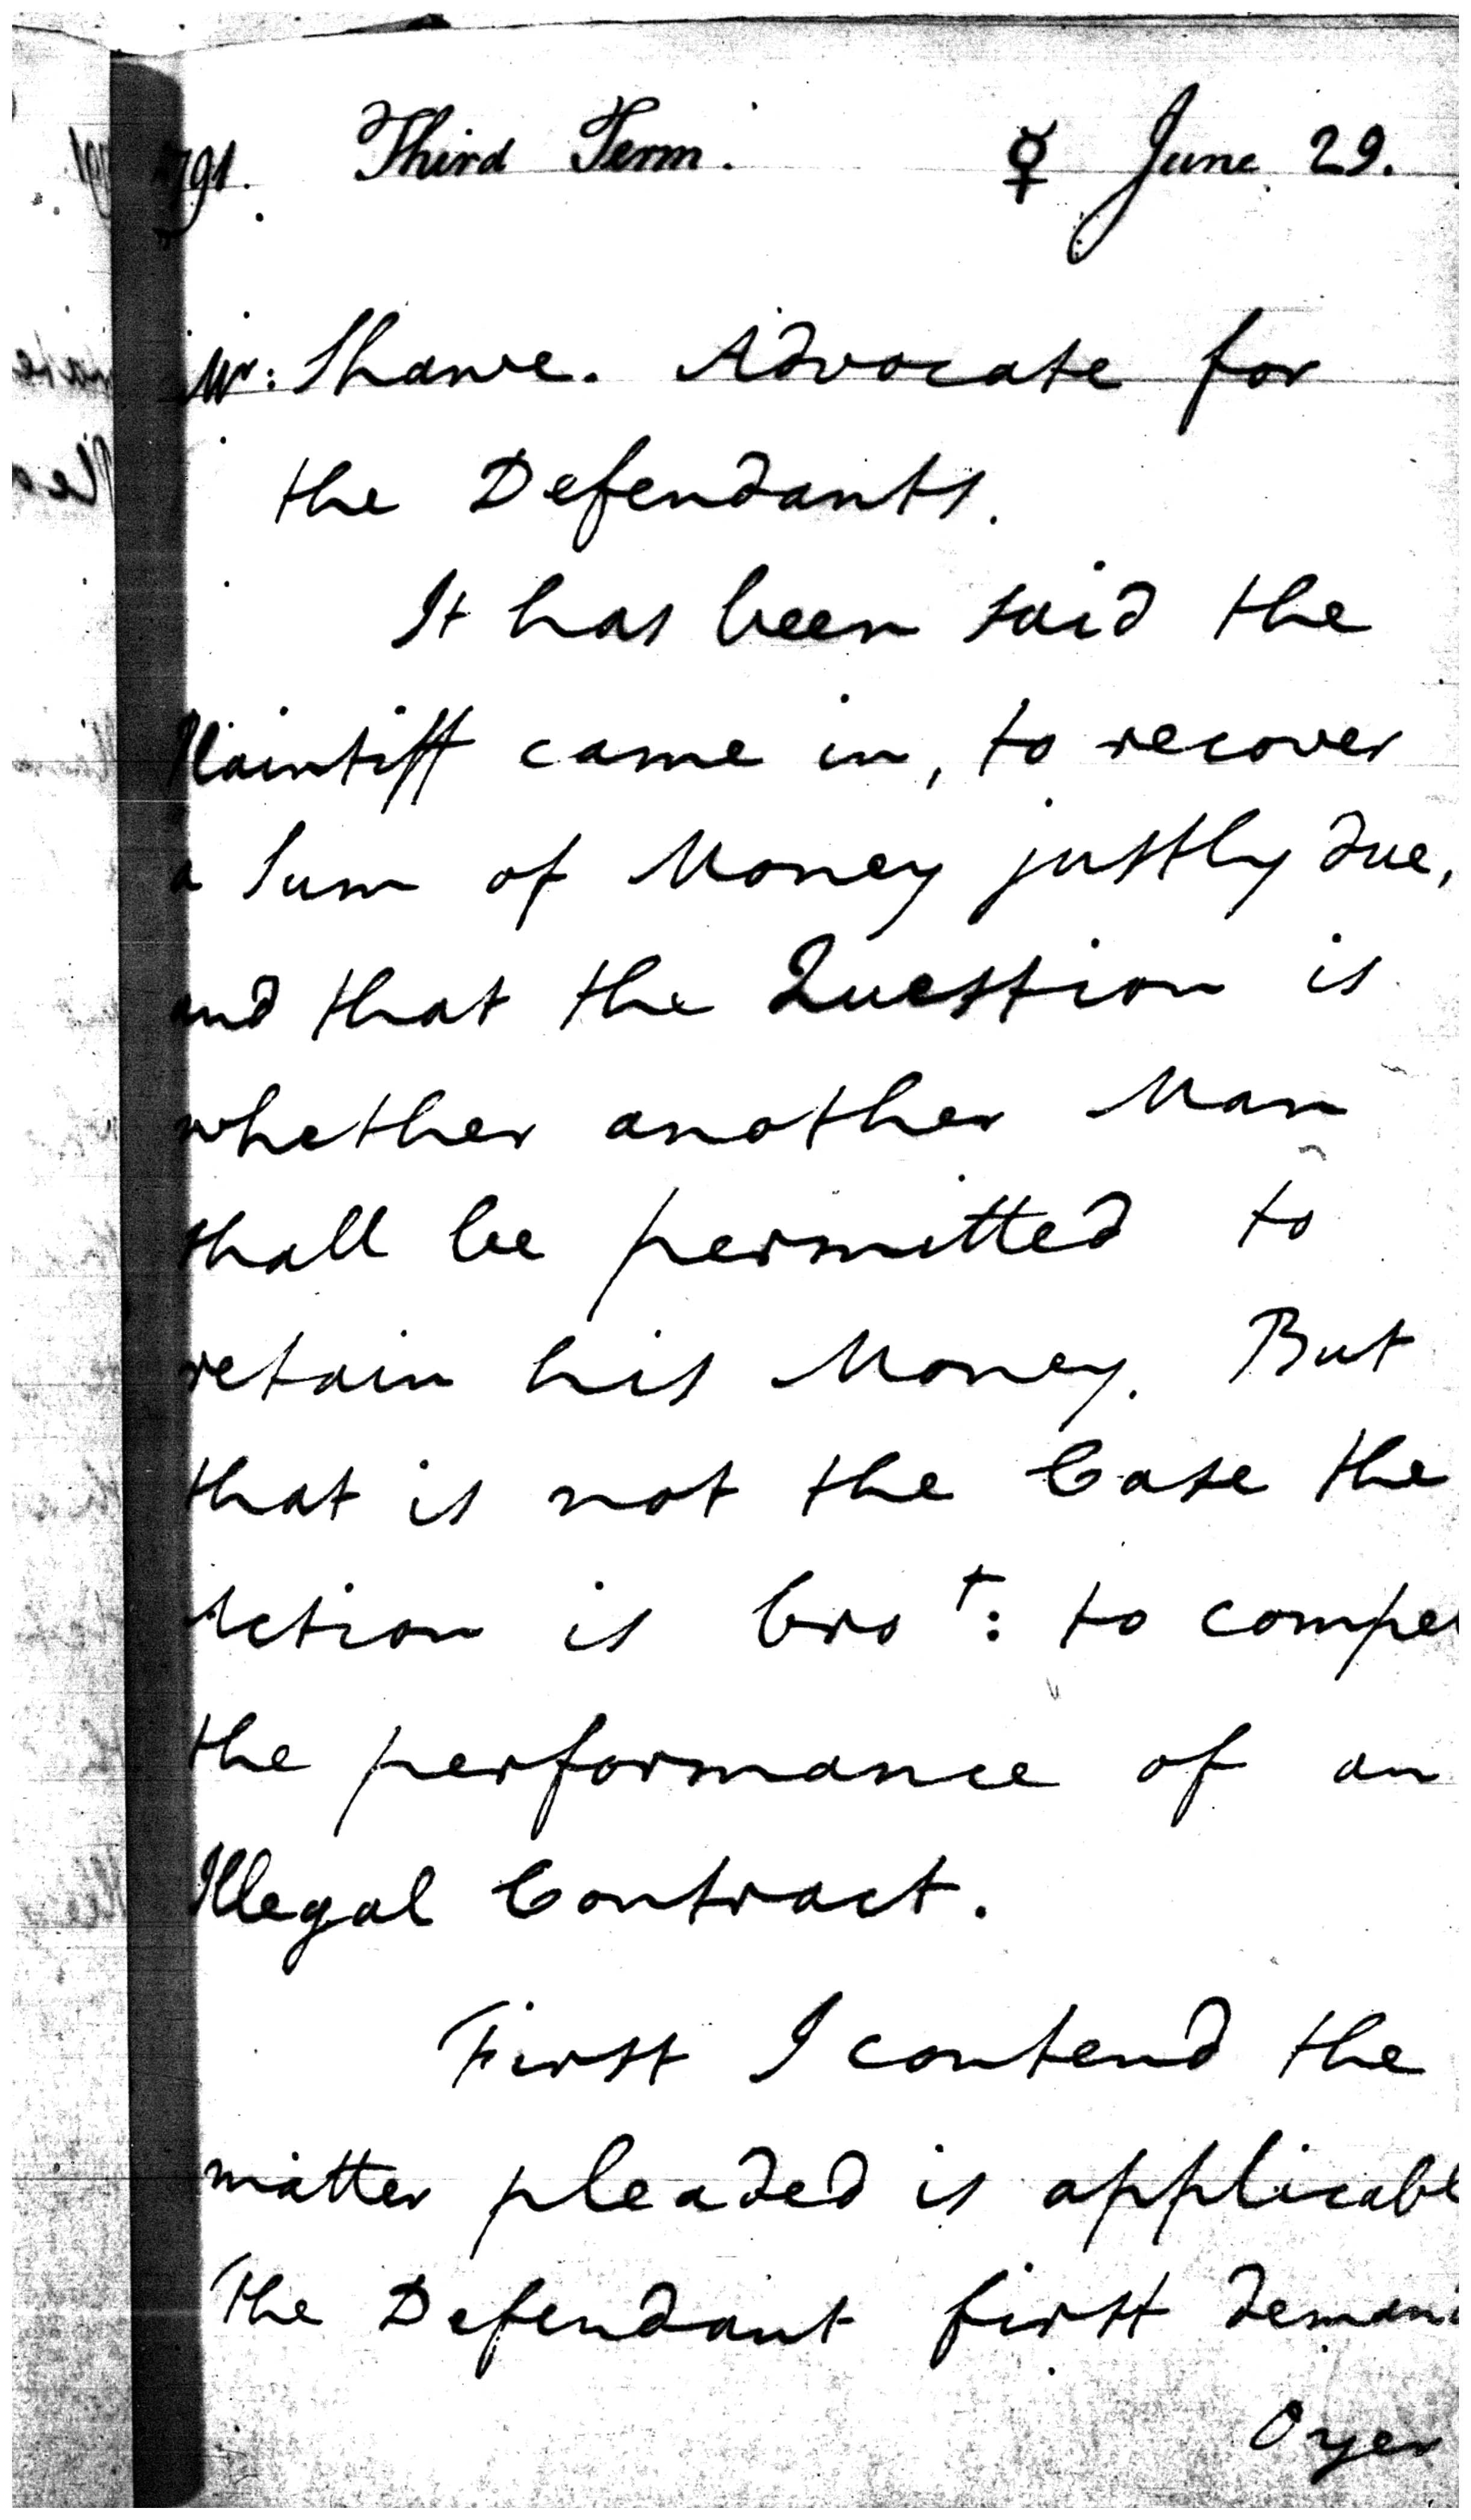 1791. Third Term. ♀ June 29.
Mr: Shawe. Advocate for
the Defendants.
It has been said the
Plaintiff came in, to recover
a Sum of Money justly due,
and that the Question is
whether another Man
shall be permitted to
retain his Money. But
that is not the Case the
Action is brot: to compel
the performance of an
Illegal Contract.
First I contend the
matter pleaded is applicabl
The Defendant first demand
Oyer